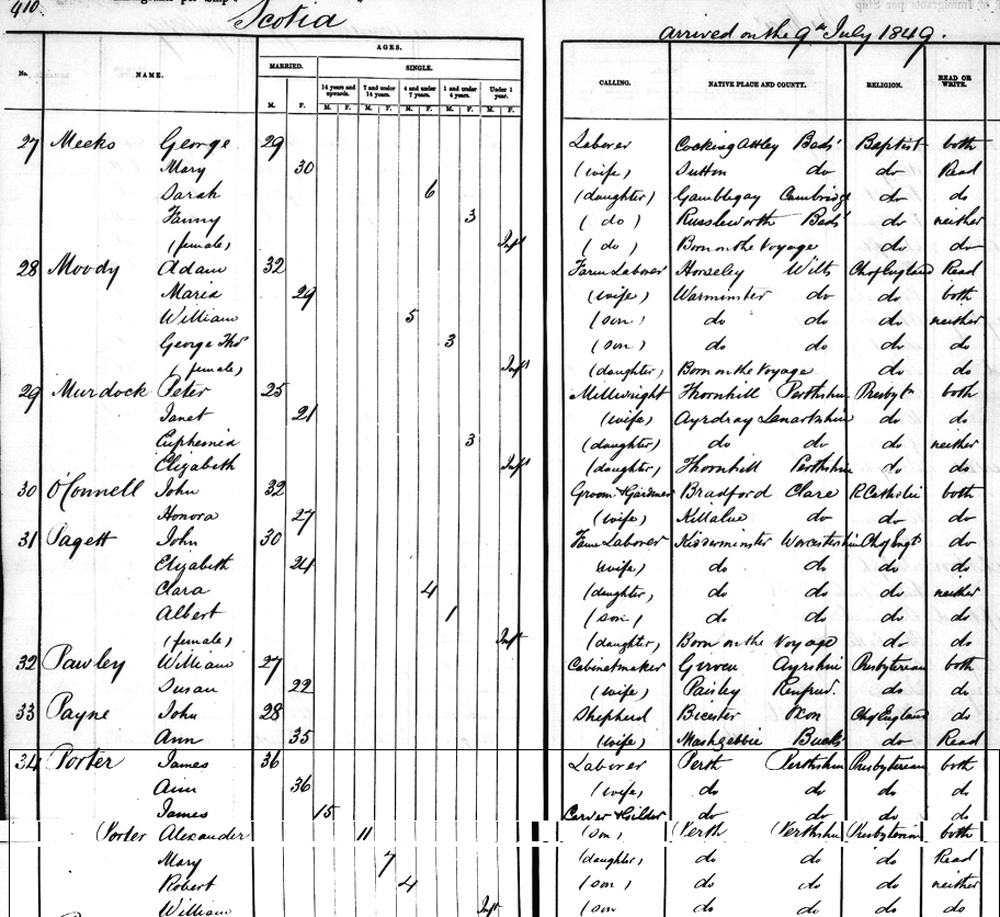 410
Scotia
arrived on the 9th July 1849.
No. NAME. AGES. CALLING. NATIVE PLACE AND COUNTY. RELIGION. READ OR WRITE.
MARRIED. SINGLE.
14 years and upwards. 7 and under 14 years. 4 and under 7 years. 1 and under 4 years. Under 1 year.
M. F. M. F. M. F. M. F. M. F. M. F.
27 Meeks George 29 Laborer Cocking Attley Beds' Baptist both
Mary 30 (wife) Sutton do do Read
Sarah 6 (daughter) Gamblegay Cambridg do do
Fanny 3 (do) Russleworth Beds' do neither
(female) Inft (do) Born on the Voyage do do
28 Moody Adam 32 Farm Laborer Horseley Wilts Ch of England Read
Maria 29 (wife) Warminster do do both
William 5 (son) do do do neither
George Thos 3 (son) do do do do
(female) Inft (daughter) Born on the Voyage do do
29 Murdock Peter 25 Millwright Thornhill Perthshire Presbytn both
Janet 21 (wife) Ayrdray Lenarkshire do do
Euphemia 3 (daughter) do do do neither
Elizabeth Inft (daughter) Thornhill Perthshire do do
30 O'Connell John 32 Groom & Gardner Bradford Clare R Catholic both
Honora 27 (wife) Killalue do do do
31 Pagett John 30 Farm Laborer Kidderminster Worcestershire Ch of Engd do
Elizabeth 24 (wife) do do do do
Clara 4 (daughter) do do do neither
Albert 1 (son) do do do do
(female) Inft (daughter) Born on the Voyage do do
32 Pawley William 27 Cabinetmaker Girven Ayrshire Presbyterian both
Susan 22 (wife) Paisley Renfrew. do do
33 Payne John 28 Shepherd Bicester Oxon Ch of England do
Ann 35 (wife) Mashgebbie Bucks do Read
34 Porter James 36 Laborer Perth Perthshire Presbyterian both
Ann 36 (wife) do do do do
James 15 Carver & Gilder do do do do
Porter Alexander 11 (son) Perth Perthshire Presbyterian both
Mary 7 (daughter) do do do Read
Robert 4 (son) do do do neither
William Inft (son do do do do